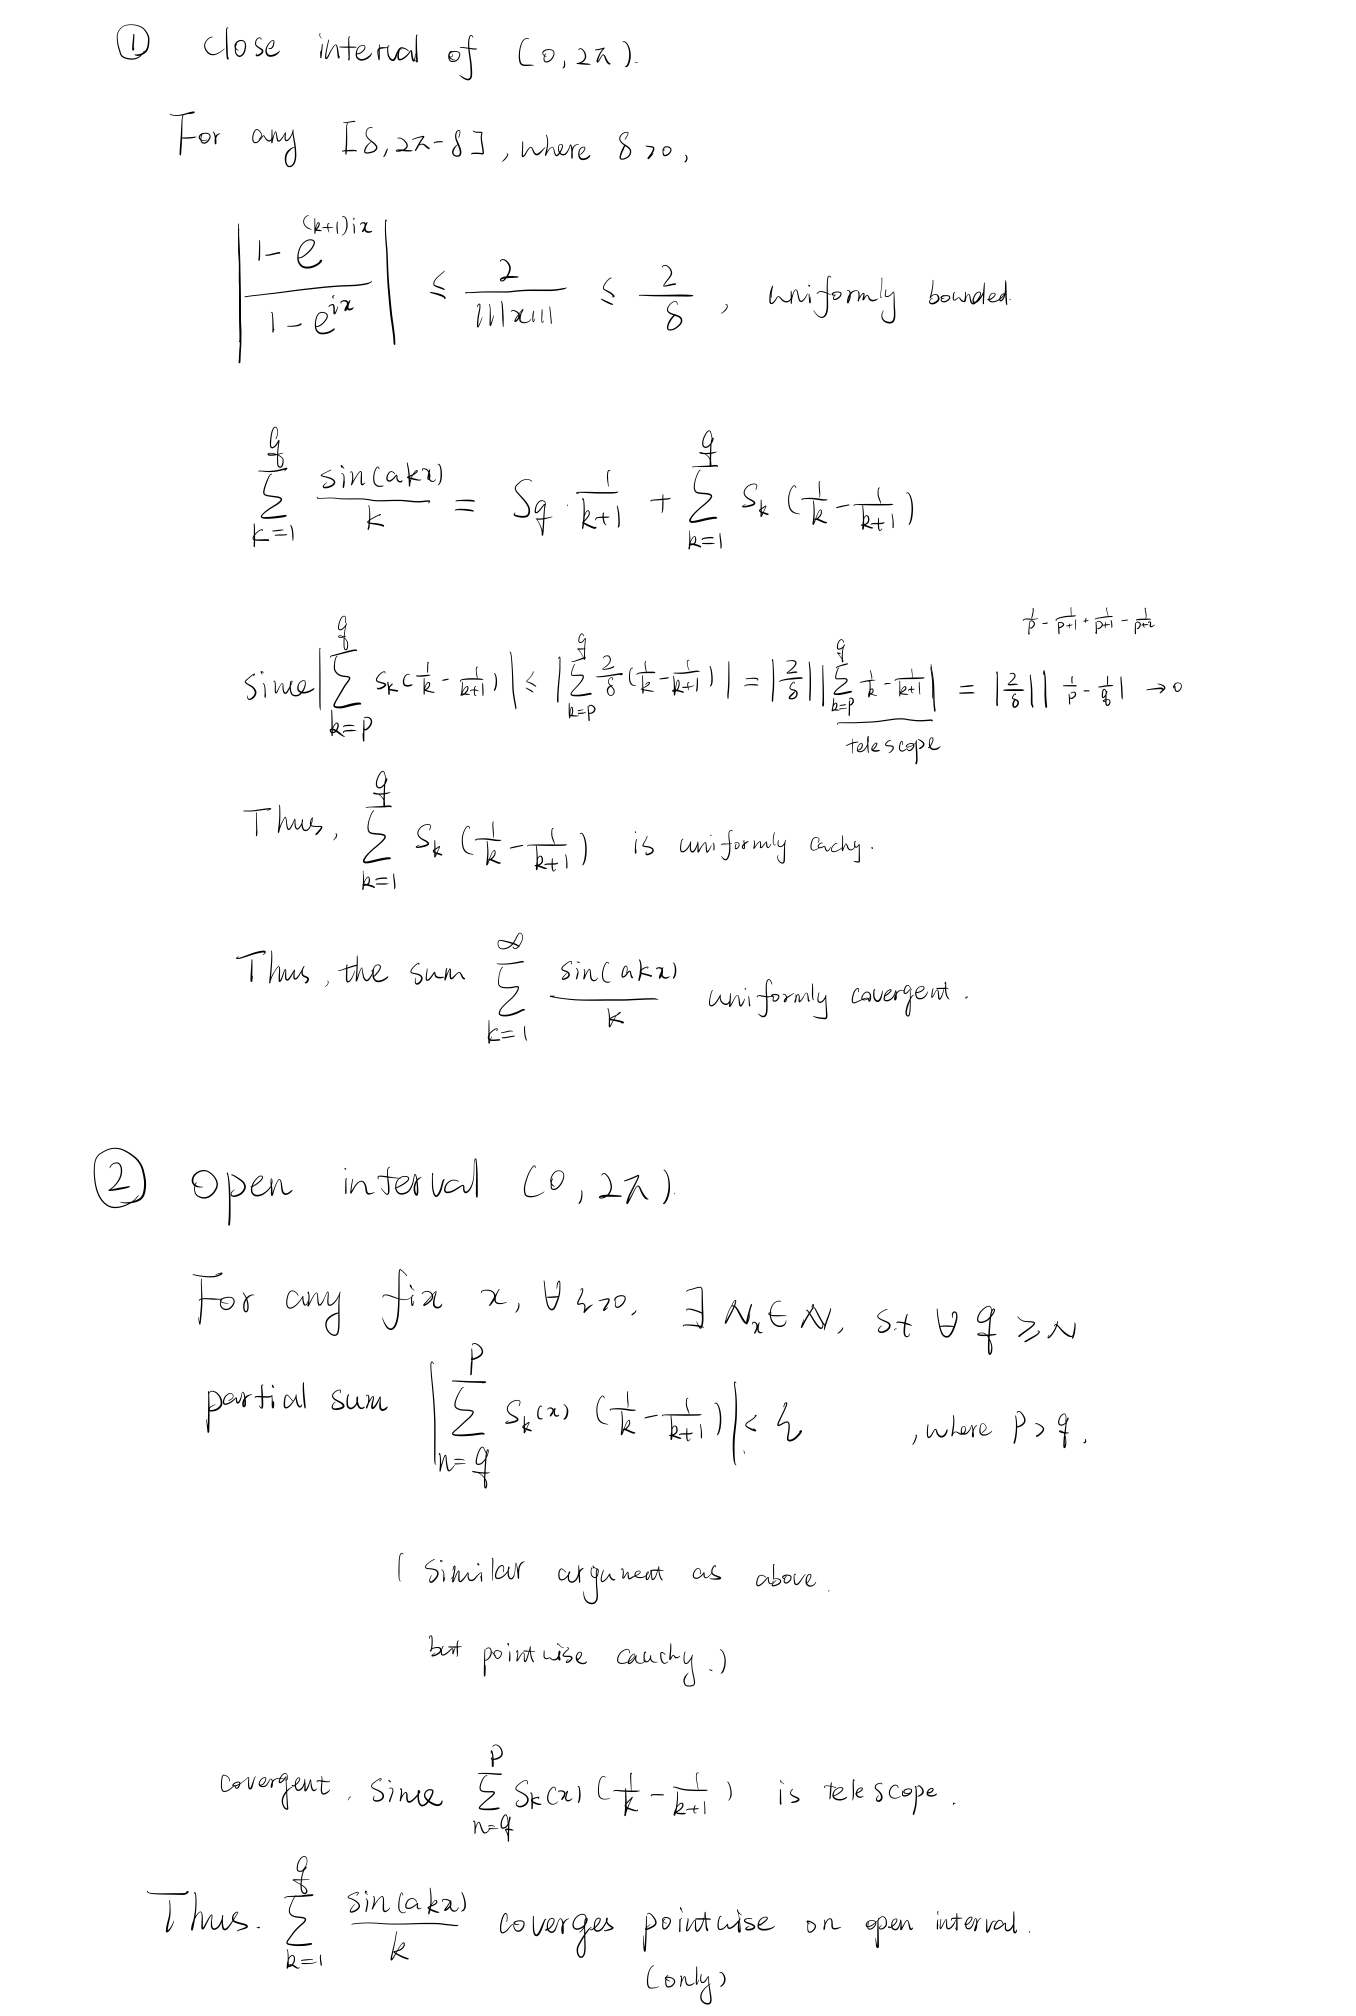 ① close interval of (0,2π).
For any [δ,2π-δ], where δ>0,
| (1-e^{(k+1)ix}) / (1-e^{ix}) | ≤ 2/|||x||| ≤ 2/δ , uniformly bounded.
∑_{k=1}^{q} sin(akx)/k = Sq · 1/(k+1) + ∑_{k=1}^{q} S_k (1/k - 1/(k+1))
1/p - 1/(p+1) + 1/(p+1) - 1/(p+2)
since | ∑_{k=p}^{q} S_k (1/k - 1/(k+1)) | ≤ | ∑_{k=p}^{q} 2/δ (1/k - 1/(k+1)) | = |2/δ| | ∑_{k=p}^{q} 1/k - 1/(k+1) | = |2/δ| | 1/p - 1/q | → 0
telescope
Thus, ∑_{k=1}^{q} S_k (1/k - 1/(k+1)) is uniformly cachy.
Thus, the sum ∑_{k=1}^{∞} sin(akx)/k uniformly covergent.
② open interval (0,2π).
For any fix x, ∀ ξ>0, ∃ N_x ∈ ℕ, s.t ∀ q ≥ N
partial sum | ∑_{n=q}^{P} S_k(x) (1/k - 1/(k+1)) | < ξ , where P > q.
( similar argument as above.
but pointwise cauchy.)
covergent. Since ∑_{n=q}^{P} S_k(x) (1/k - 1/(k+1)) is telescope.
Thus. ∑_{k=1}^{q} sin(akx)/k coverges pointwise on open interval.
(only)